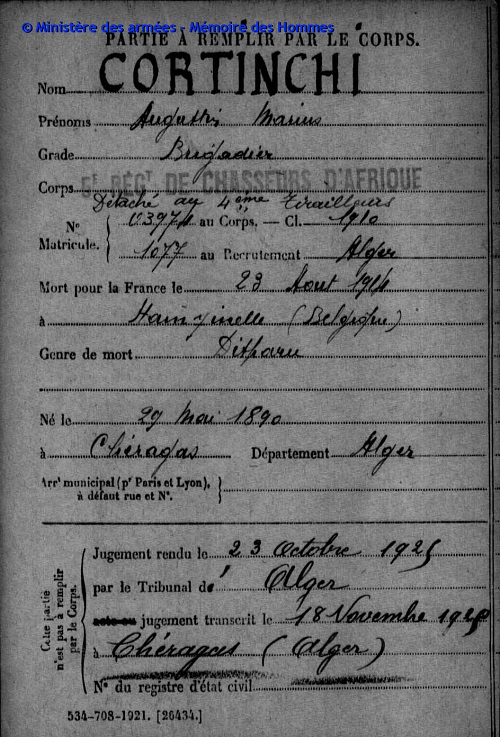 © Ministère des armées - Mémoire des Hommes
PARTIE À REMPLIR PAR LE CORPS.
Nom CORTINCHI
Prénoms Augustin Marius
Grade Brigadier
Corps 5e RÉGt DE CHASSEURS D'AFRIQUE
Détaché au 4ème Tirailleurs
No Matricule. { 03974 au Corps. — Cl. 1910
1077 au Recrutement Alger
Mort pour la France le 23 Aout 1914
à Ham (Belgique)
Genre de mort Disparu
Né le 29 Mai 1890
à Chéragas Département Alger
Arrt municipal (pr Paris et Lyon), }
à défaut rue et No.
Cette partie n'est pas à remplir par le Corps.
Jugement rendu le 23 Octobre 1925
par le Tribunal de Alger
acte ou jugement transcrit le 18 Novembre
à Chéragas (Alger)
No du registre d'état civil
534-708-1921. [26434.]